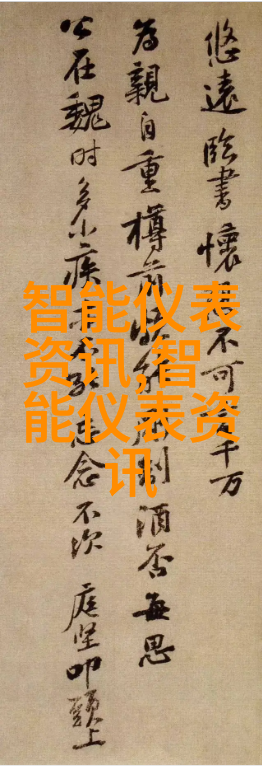 悠遠臨書懷不可千万
為親自重樽前制酒否每思
公在魏時多小疾不忘念不次 庭坚叩頭上
智能仪表
资讯,智
能仪表资
讯